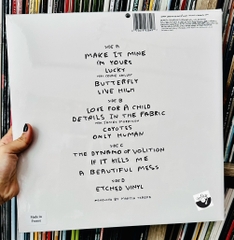 SIDE A
MAKE IT MINE
I'M YOURS
LUCKY
BUTTERFLY
LIVE HIGH
SIDE B
LOVE FOR A CHILD
DETAILS IN THE FABRIC
COYOTES
ONLY HUMAN
SIDE C
THE DYNAMO OF VOLITION
IF IT KILLS ME
A BEAUTIFUL MESS
SIDE D
ETCHED VINYL
PRODUCED BY MARTIN TEREFE
Made in